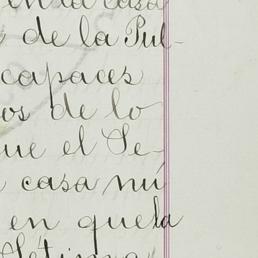 en la casa
de la Pul-
capaces
os de lo
ue el Se-
casa nú
en que la
Sétima